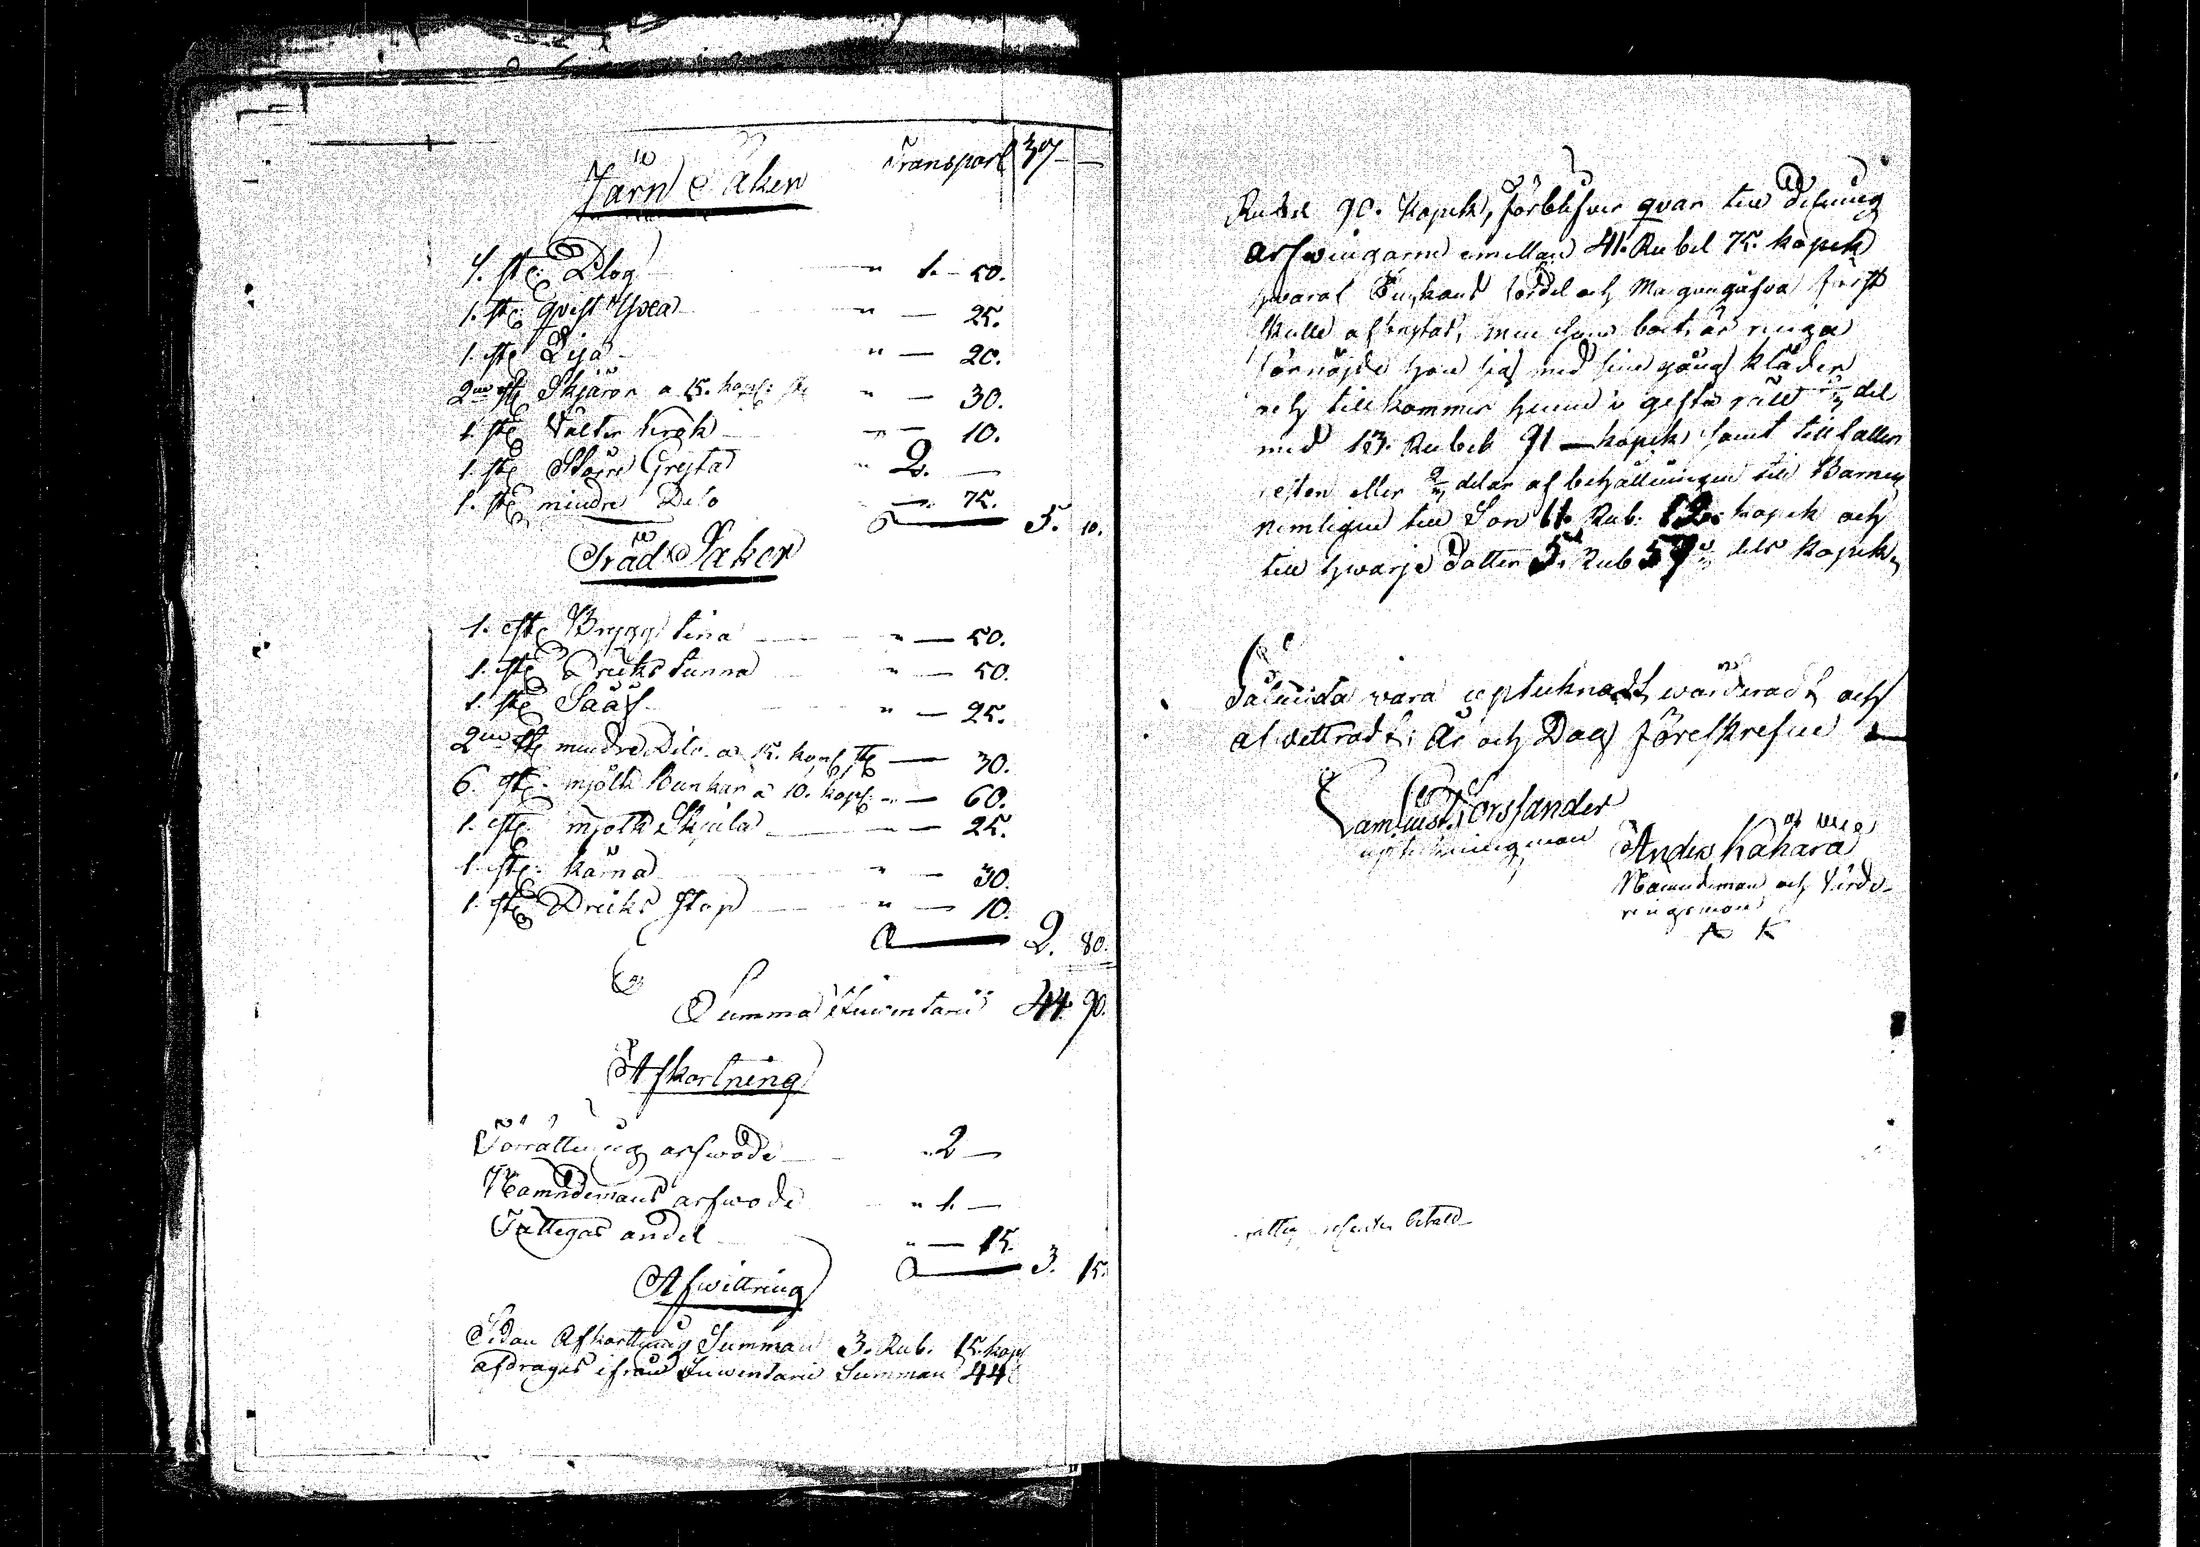 Transport 37 —
Järn Saker
1. st: Plog " 1. — 50.
1. st: qvist Yxa " — 25.
1. st: Lija " — 20.
2ne st: Skjäror a 15. kop: st: " — 30.
1. st: krok " — 10.
1. st: Större Gryta " 2. —
1. st: mindre Dito — 75.
5. 10.
Träd Saker
1. st: Brygg tina " — 50.
1. st: Dricks tunna " — 50.
1. st: Sååf " — 25.
2ne st: mindre Dito a 15. kop: st: — 30.
6. st: mjölk Bunkar a 10. kop: " — 60.
1. st: mjölk Skjula " — 25.
1. st: kärna " — 30.
1. st: Dricks stop " — 10.
2. 80.
Summa Inventarii 44. 90.
Afkortning
Förrättning arfwode " 2 —
Nämndemans arfwode " 1. —
Fattigas andel " — 15.
3. 15.
Afwittring
Sedan Afkortnings Summan 3. Rub. 15. kop
afdrages ifrån Inventarii Summan 44
Rubel 90. kopek, förblifver qvar till delning
arfwingarne emellan 41. Rubel 75. kopek
hwaraf fördel och Morgongåfva först
skulle afbrytas, men som boet är ringa
förnöjde hon sig med sina gång kläder
och tillkommer henne i gifto rätt 1/3 del
med 13. Rubel 91 — kopek samt tillfaller
resten eller 2/3 delar af behållningen till Barnen
nemligen till Son 11. Rub. 12. kopek och
till hwarje Dotter 5. Rub 57 dels kopek.
Sålunda vara uptecknadt, wärderadt och
afvittradt; År och Dag föreskrefne
Forssander
uptekningsman
Anders Kähärä
Nämndeman och Värde-
ringsman
A K
betald